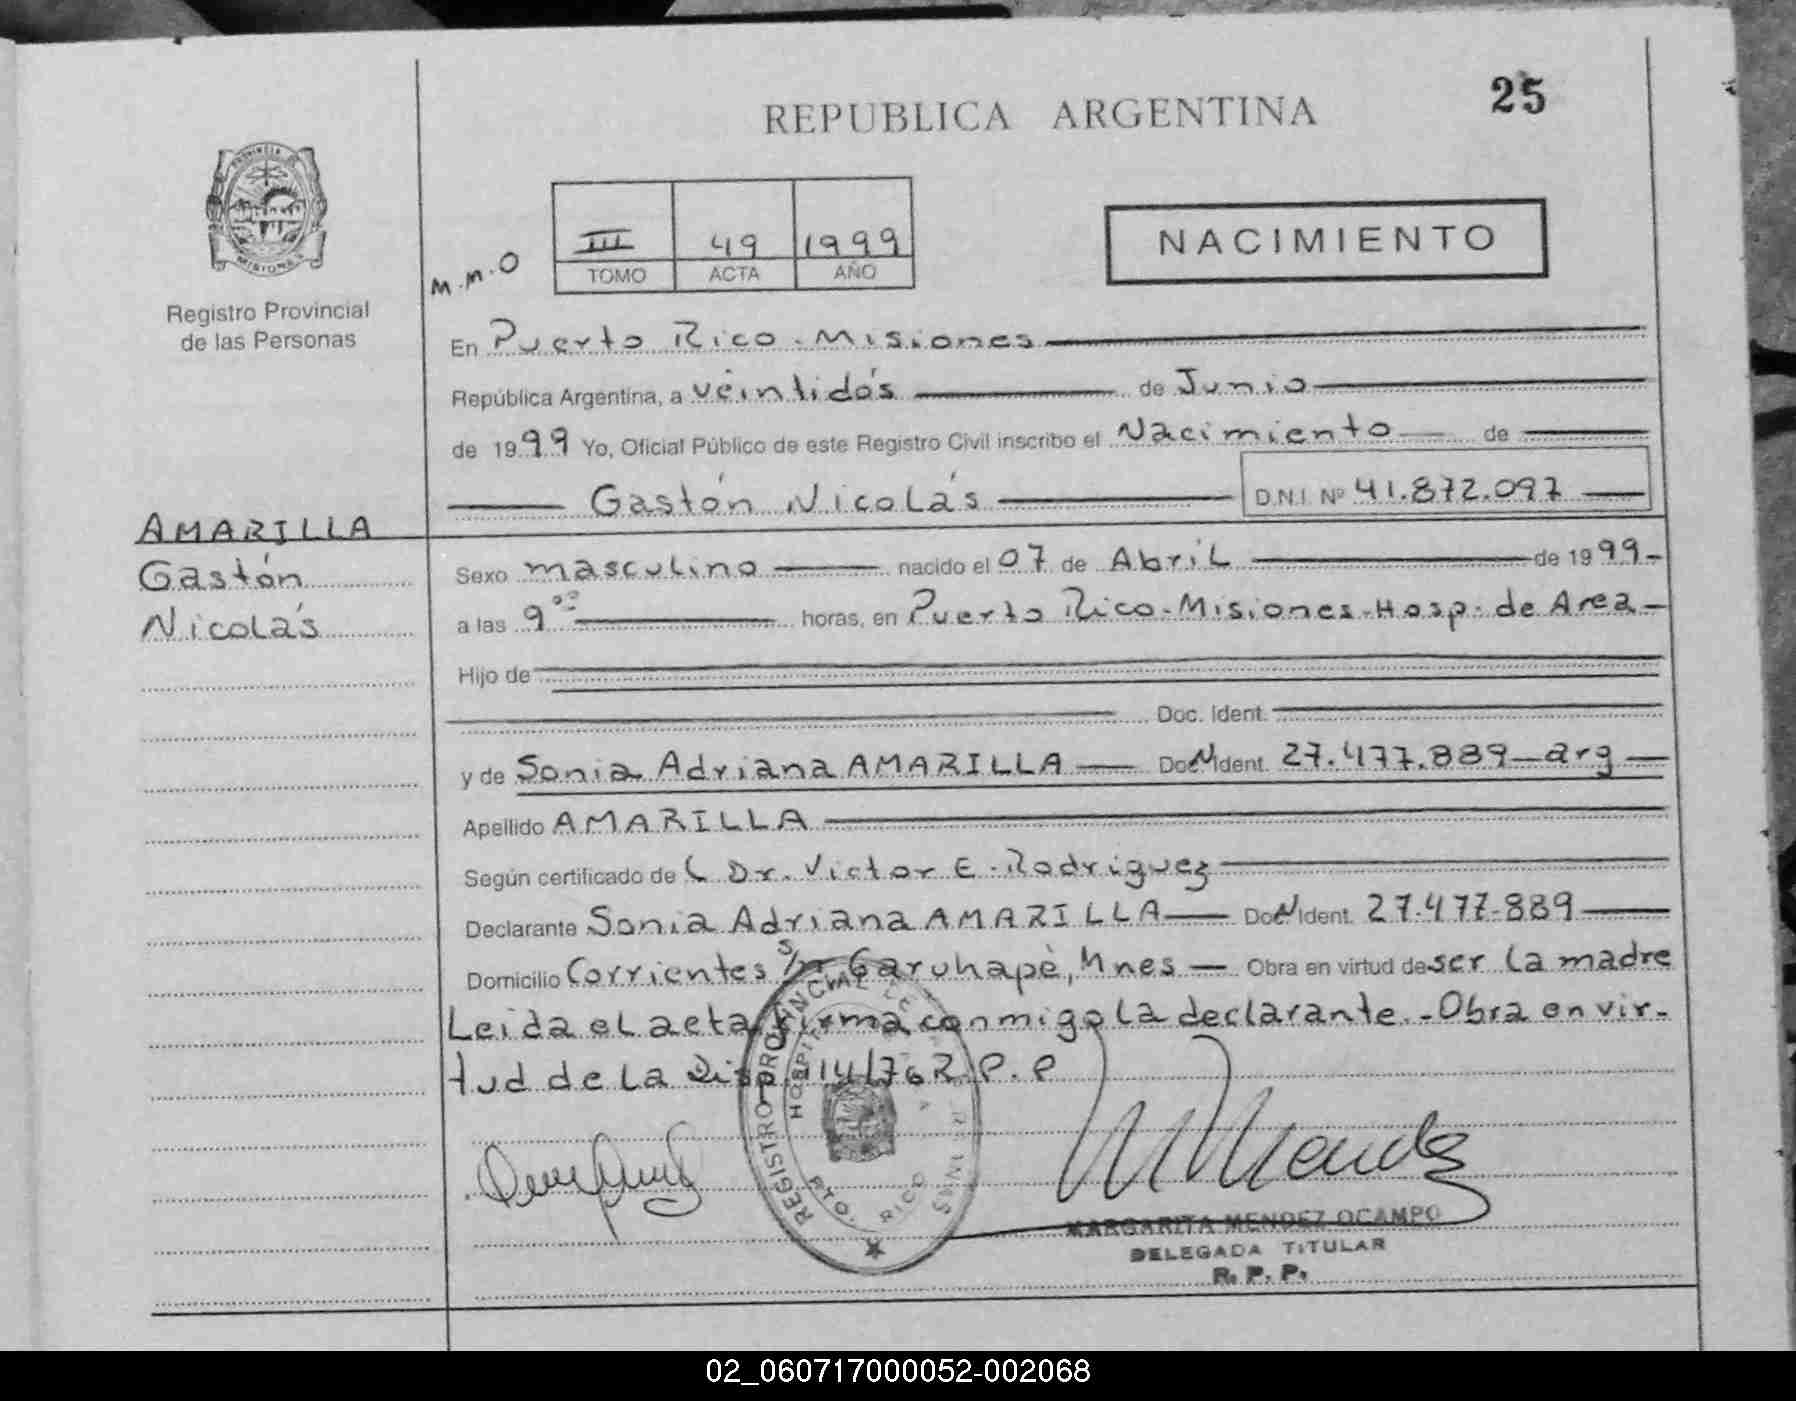 REPUBLICA ARGENTINA
25
PROVINCIA DE
MISIONES
Registro Provincial
de las Personas
III 49 1999
TOMO ACTA AÑO
NACIMIENTO
M.M.O
En Puerto Rico - Misiones
República Argentina, a veintidós de Junio
de 1999 Yo, Oficial Público de este Registro Civil inscribo el Nacimiento de
Gastón Nicolás D.N.I. Nº 41.872.097
AMARILLA
Gastón
Nicolás
Sexo masculino nacido el 07 de Abril de 1999
a las 9°° horas, en Puerto Rico - Misiones - Hosp. de Area
Hijo de
Doc. Ident.
y de Sonia Adriana AMARILLA Doc. Ident. 27.477.889 - arg
Apellido AMARILLA
Según certificado de L Dr. Victor E. Rodriguez
Declarante Sonia Adriana AMARILLA Doc. Ident. 27.477.889
Domicilio Corrientes s/n Garuhapè, Mnes - Obra en virtud de ser la madre
Leida el acta firma conmigo la declarante. - Obra en vir-
tud de la Disp 414/76 R.P.P
REGISTRO PROVINCIAL DE LAS PERSONAS
HOSPITAL
PTO. RICO
MARGARITA MENDEZ OCAMPO
DELEGADA TITULAR
R. P. P.
02_060717000052-002068